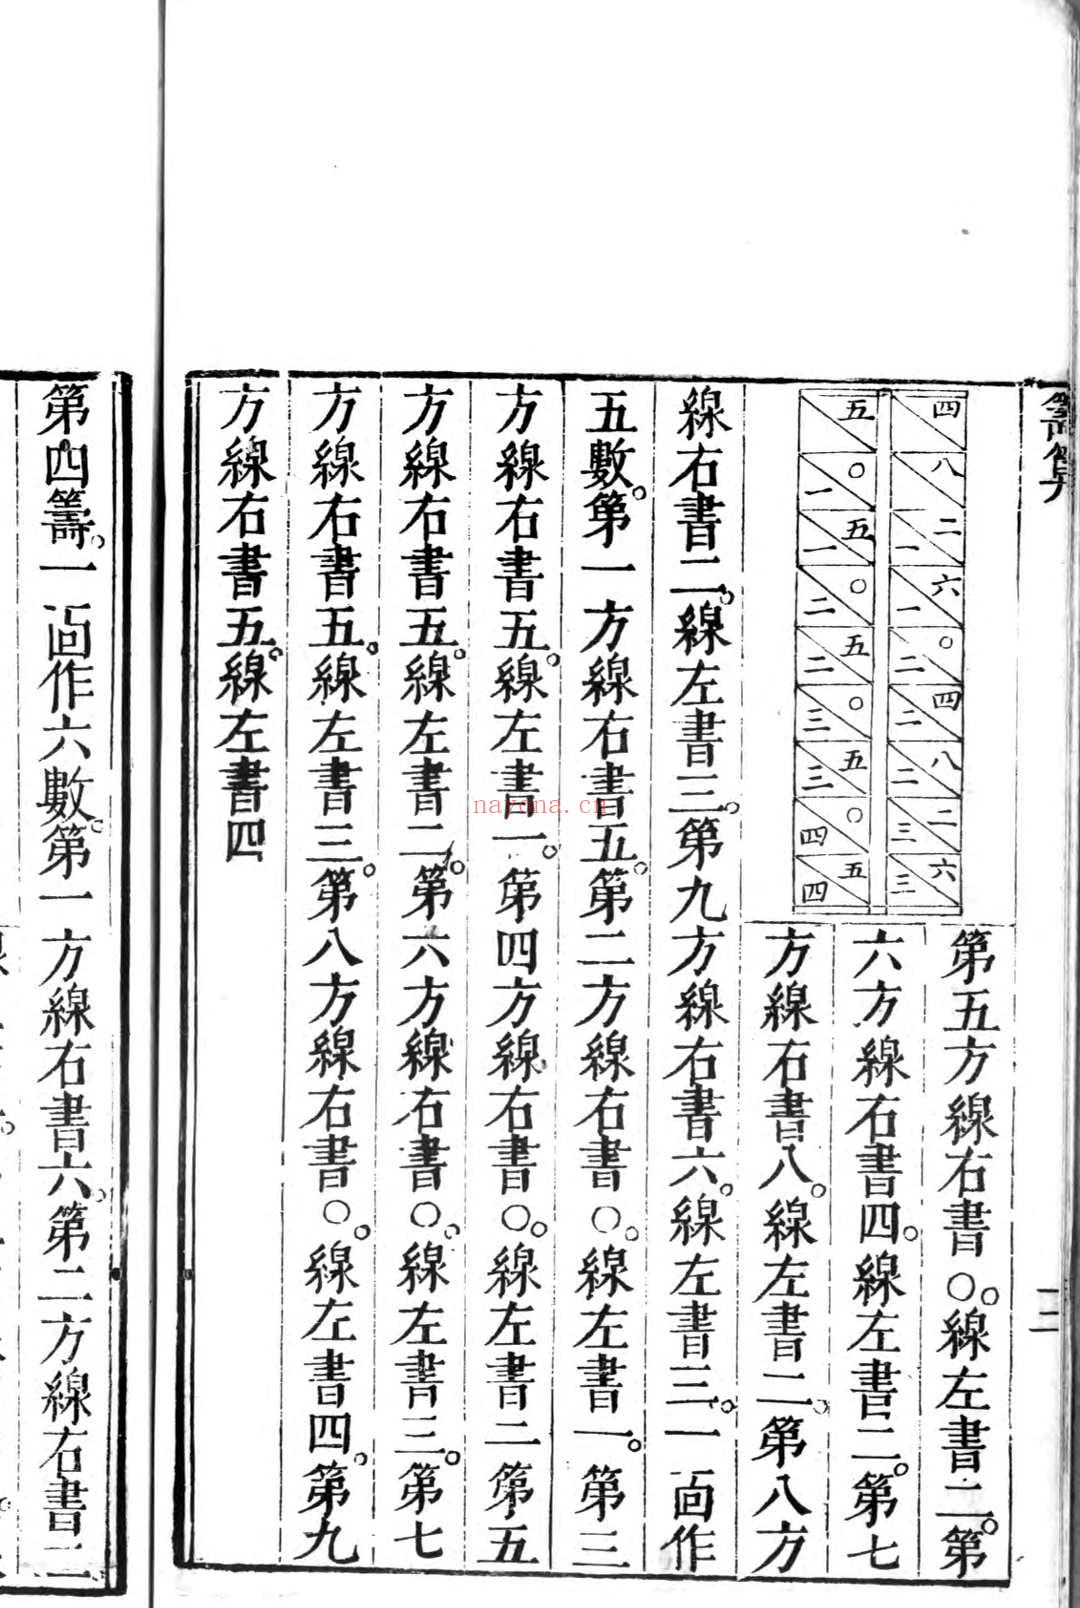 籌算
二
四
八
二一
六一
〇二
四二
八二
二三
六三
五
〇一
五一
〇二
五二
〇三
五三
〇四
五四
第五方線右書〇。線左書二。第
六方線右書四。線左書二。第七
方線右書八。線左書二。第八方
線右書二。線左書三。第九方線右書六。線左書三。一面作
五數。第一方線右書五。第二方線右書〇。線左書一。第三
方線右書五。線左書一。第四方線右書〇。線左書二第五
方線右書五。線左書二。第六方線右書〇。線左書三。第七
方線右書五。線左書三。第八方線右書〇。線左書四。第九
方線右書五。線左書四
第四籌。一面作六數。第一方線右書六。第二方線右書二
nayona.cn